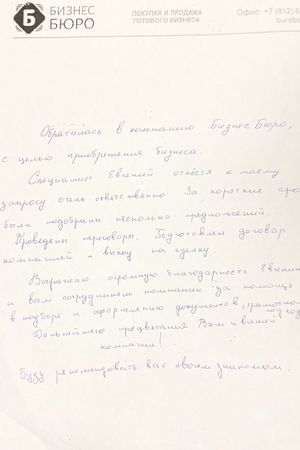 БИЗНЕС
БЮРО
ПОКУПКА И ПРОДАЖА
ГОТОВОГО БИЗНЕСА
Офис: +7 (812) 6
burobiz
Обратилась в компанию Бизнес Бюро,
с целью приобретения бизнеса.
Специалист Евгений отнёсся к моему
запросу очень ответственно. За короткие сро
были подобраны несколько предложений
Проведены переговоры. Подготовлен договор
компанией и выход на сделку
Выражаю огромную благодарность Евгению
и вам сотрудникам компании за помощь
в подборе и оформлению документов, грамотном
подходе
Дальнейшего процветания Вам и вашей
компании!
Буду рекомендовать вас своим знакомым.